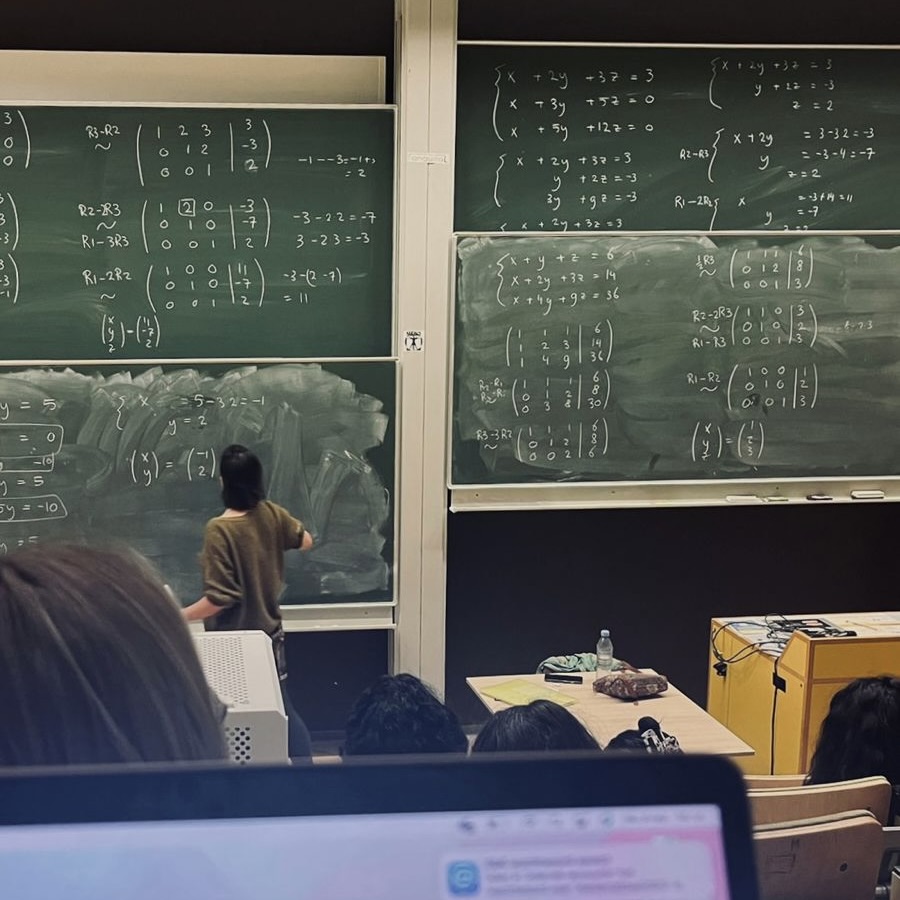 3
0
0
R3-R2
~
( 1 2 3 | 3 )
( 0 1 2 | -3 )
( 0 0 1 | 2 )
-1--3=-1+3
= 2
R2-2R3
~
R1-3R3
( 1 2 0 | -3 )
( 0 1 0 | -7 )
( 0 0 1 | 2 )
-3-2.2 = -7
3-2.3 = -3
R1-2R2
~
( 1 0 0 | 11 )
( 0 1 0 | -7 )
( 0 0 1 | 2 )
-3-(2·-7)
= 11
(x y z) = (11 -7 2)
y = 5
= 0
-10
y = 5
5y = -10
{ x = 5-3.2 = -1
y = 2
(x y) = (-1 2)
{ x + 2y + 3z = 3
x + 3y + 5z = 0
x + 5y + 12z = 0
{ x + 2y + 3z = 3
y + 2z = -3
3y + 9z = -3
x + 2y + 3z = 3
{ x + 2y + 3z = 3
y + 2z = -3
z = 2
R2-R3
{ x + 2y = 3-3.2 = -3
y = -3-4 = -7
z = 2
R1-2R2
{ x = -3+14 = 11
y = -7
{ x + y + z = 6
x + 2y + 3z = 14
x + 4y + 9z = 36
( 1 1 1 | 6 )
( 1 2 3 | 14 )
( 1 4 9 | 36 )
( 1 1 1 | 6 )
( 0 1 2 | 8 )
( 0 3 8 | 30 )
R3-3R2
~
( 1 1 1 | 6 )
( 0 1 2 | 8 )
( 0 0 2 | 6 )
½R3
~
( 1 1 1 | 6 )
( 0 1 2 | 8 )
( 0 0 1 | 3 )
R2-2R3
~
R1-R3
( 1 1 0 | 3 )
( 0 1 0 | 2 )
( 0 0 1 | 3 )
R1-R2
~
( 1 0 0 | 1 )
( 0 1 0 | 2 )
( 0 0 1 | 3 )
(x y z) = (1 2 3)